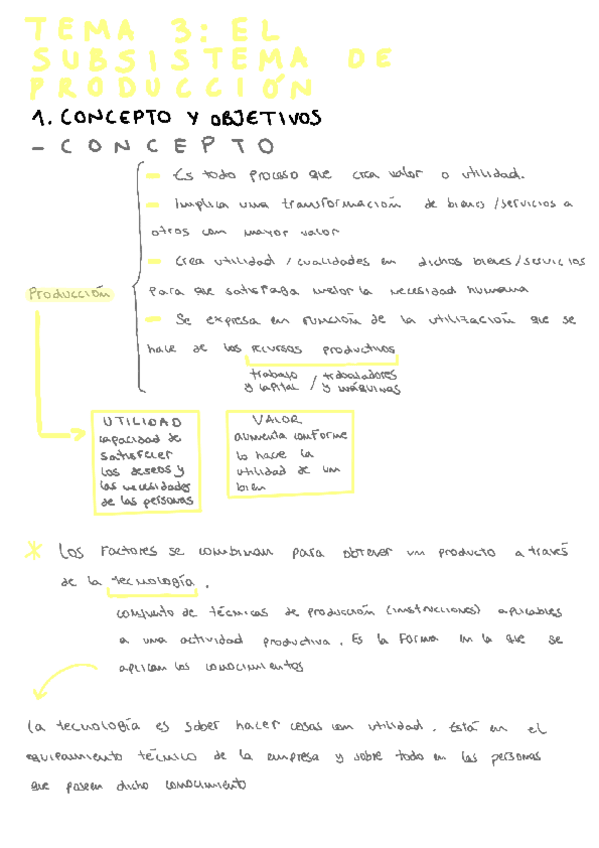 TEMA 3: EL
SUBSISTEMA DE
PRODUCCIÓN
1. CONCEPTO Y OBJETIVOS
- CONCEPTO
- Es todo proceso que crea valor o utilidad.
- Implica una transformación de bienes/servicios a
otros con mayor valor
- Crea utilidad / cualidades en dichos bienes/servicios
Producción
para que satisfaga mejor la necesidad humana
- Se expresa en función de la utilización que se
hace de los recursos productivos
trabajo / trabajadores
y capital / y máquinas
UTILIDAD
capacidad de
satisfacer
los deseos y
las necesidades
de las personas
VALOR
aumenta conforme
lo hace la
utilidad de un
bien
* Los factores se combinan para obtener un producto a través
de la tecnología.
conjunto de técnicas de producción (instrucciones) aplicables
a una actividad productiva. Es la forma en la que se
aplican los conocimientos
La tecnología es saber hacer cosas con utilidad. Está en el
equipamiento técnico de la empresa y sobre todo en las personas
que poseen dicho conocimiento